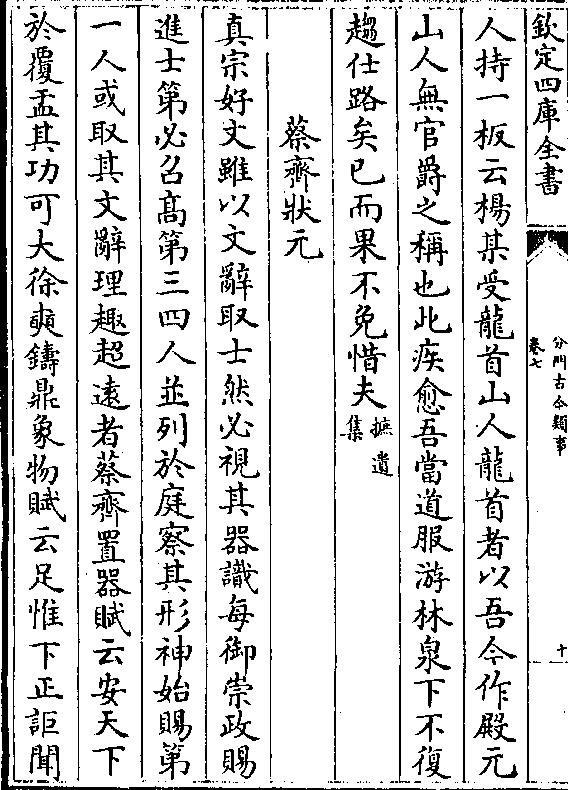 欽定四庫全書
分門古今類事
卷七
十
人持一板云楊某受龍首山人龍首者以吾今作殿元
山人無官爵之稱也此疾愈吾當道服游林泉下不復
趨仕路矣已而果不免惜夫摭遺集
蔡齊狀元
真宗好文雖以文辭取士然必視其器識每御崇政賜
進士第必召髙第三四人並列於庭察其形神始賜第
一人或取其文辭理趣超遠者蔡齊置器賦云安天下
於覆盂其功可大徐奭鑄鼎象物賦云足惟下正詎聞